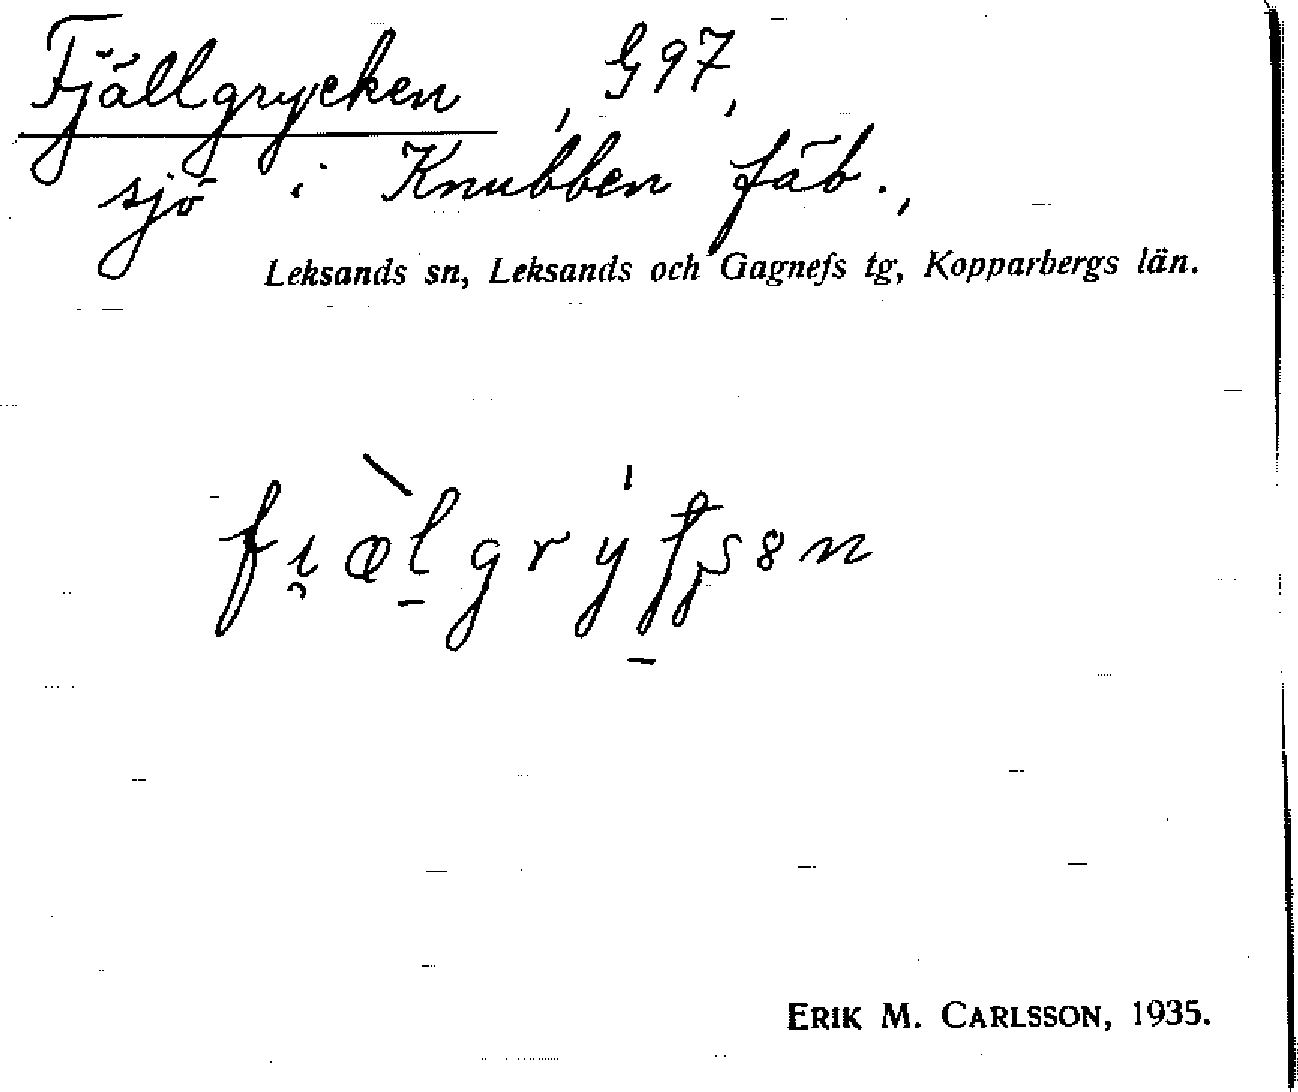 Fjällgrycken, G 97,
sjö i Knubben fäb.,
Leksands sn, Leksands och Gagnefs tg, Kopparbergs län.
ERIK M. CARLSSON, 1935.